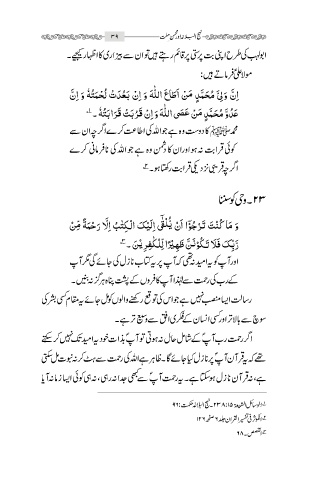 نہج البلاغہ اور محسن ملت
۳۹
ابولہب کی طرح اپنی بت پرستی پر قائم رہتے ہیں تو ان سے بیزاری کا اظہار کیجیے۔
مولا علیؑ فرماتے ہیں:
اِنَّ وَلِيَّ مُحَمَّدٍ مَنْ اَطَاعَ اللّٰهَ وَ اِنْ بَعُدَتْ لُحْمَتُهٗ وَ اِنَّ
عَدُوَّ مُحَمَّدٍ مَنْ عَصَى اللّٰهَ وَ اِنْ قَرُبَتْ قَرَابَتُهٗ۔ ۱؎
محمد ﷺ کا دوست وہ ہے جو اللہ کی اطاعت کرے اگرچہ ان سے
کوئی قرابت نہ ہو اور ان کا دشمن وہ ہے جو اللہ کی نافرمانی کرے
اگرچہ قریبی نزدیکی قرابت رکھتا ہو۔ ۲؎
۲۳۔ وحی کو سننا
وَ مَا كُنْتَ تَرْجُوْۤا اَنْ يُّلْقٰۤى اِلَيْكَ الْكِتٰبُ اِلَّا رَحْمَةً مِّنْ
رَّبِّكَ فَلَا تَكُوْنَنَّ ظَهِيْرًا لِّلْكٰفِرِيْنَ۔ ۳؎
اور آپ کو یہ امید نہ تھی کہ آپ پر یہ کتاب نازل کی جائے گی مگر آپ
کے رب کی رحمت سے لہٰذا آپ کافروں کے پشت پناہ ہرگز نہ بنیں۔
رسالت ایسا منصب نہیں ہے جو اس کی توقع رکھنے والوں کو مل جائے یہ مقام کسی بشر کی
سوچ سے بالاتر اور کسی انسان کے فکری افق سے وسیع تر ہے۔
اگر رحمت رب آپؐ کے شامل حال نہ ہوتی تو آپؐ بذات خود یہ امید تک نہیں کر سکتے
تھے کہ یہ قرآن آپؐ پر نازل کیا جائے گا۔ ظاہر ہے اللہ کی رحمت سے ہٹ کر نہ نبوت مل سکتی
ہے، نہ قرآن نازل ہو سکتا ہے۔ یہ رحمت آپؐ سے کبھی جدا نہ رہی، نہ ہی کوئی ایسا زمانہ آیا
۱؎ وسائل الشیعۃ: ۱۵: ۲۳۸۔ نہج البلاغہ حکمت: ۹۶
۲؎ الکوثر فی تفسیر القرآن جلد ۶ صفحہ ۱۲۶
۳؎ القصص۔ ۹۸